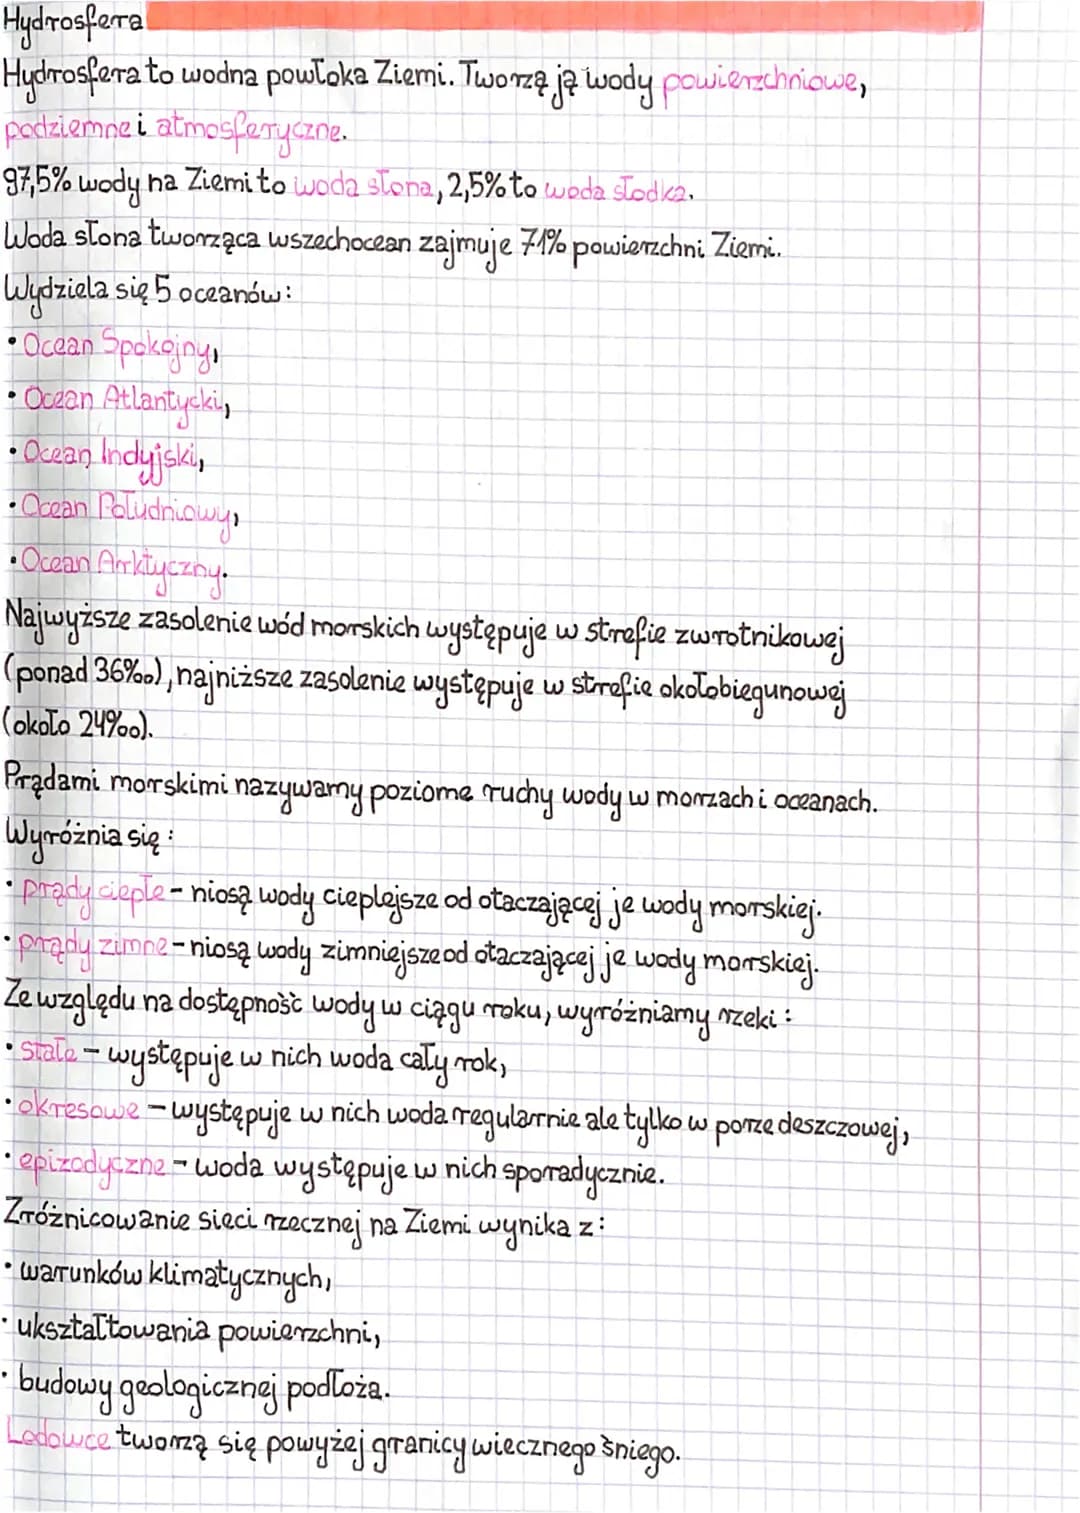 Hydrosfera
Hydrosfera to wodna powłoka Ziemi. Tworzą ją wody powierzchniowe,
podziemne i atmosferyczne.
97,5% wody na Ziemi to woda słona, 2,5% to woda słodka.
Woda słona tworząca wszechocean zajmuje 71% powierzchni Ziemi.
Wydziela się 5 oceanów:
• Ocean Spokojny,
• Ocean Atlantycki,
• Ocean Indyjski,
• Ocean Południowy,
• Ocean Arktyczny.
Najwyższe zasolenie wód morskich występuje w strefie zwrotnikowej
(ponad 36‰), najniższe zasolenie występuje w strefie okołobiegunowej
(około 24‰).
Prądami morskimi nazywamy poziome ruchy wody w morzach i oceanach.
Wyróżnia się:
• prądy ciepłe - niosą wody cieplejsze od otaczającej je wody morskiej.
• prądy zimne - niosą wody zimniejsze od otaczającej je wody morskiej.
Ze względu na dostępność wody w ciągu roku, wyróżniamy rzeki:
• stałe - występuje w nich woda cały rok,
• okresowe - występuje w nich woda regularnie ale tylko w porze deszczowej,
• epizodyczne - woda występuje w nich sporadycznie.
Zróżnicowanie sieci rzecznej na Ziemi wynika z:
• warunków klimatycznych,
• ukształtowania powierzchni,
• budowy geologicznej podłoża.
Lodowce tworzą się powyżej granicy wiecznego śniego.